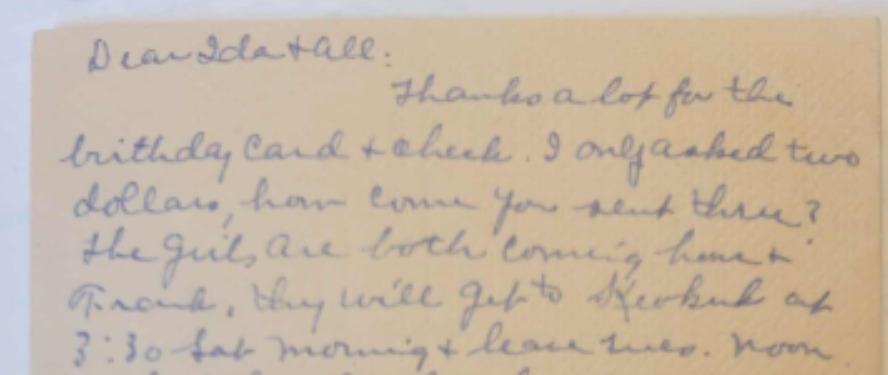 Dear Ida + all:
Thanks a lot for the
brithday card + check. I only asked two
dollars, how come you sent three?
The girls are both coming home +
Frank, they will get to Keokuk at
3:30 Sat morning + leave Tues. noon